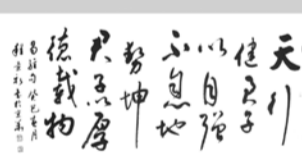 天行
健君子
以自強
不息地
勢坤
君子以厚
德載物
易經句癸巳